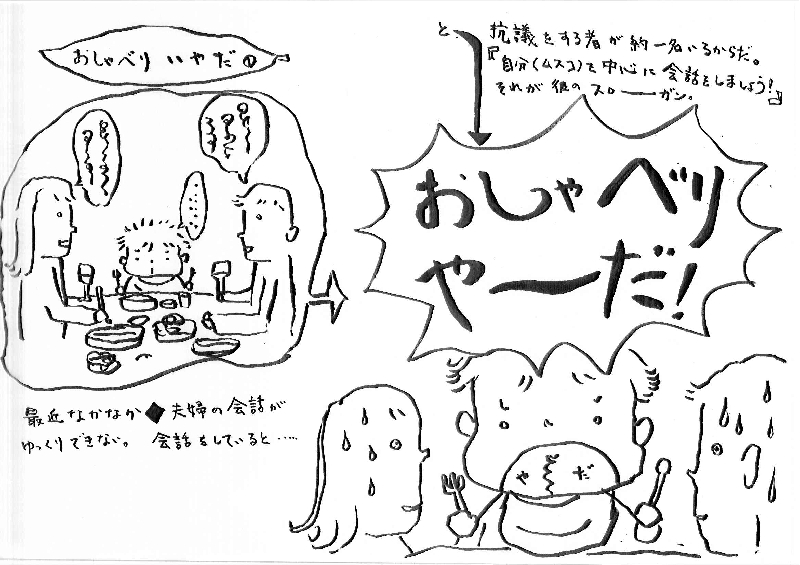 おしゃべり いやだ①
最近なかなか◆夫婦の会話が
ゆっくりできない。 会話をしていると……
と
抗議をする者が約一名いるからだ。
『自分(ムスコ)を中心に会話をしましょう!』
それが彼のスローガン。
おしゃべり
やーだ!
や だ